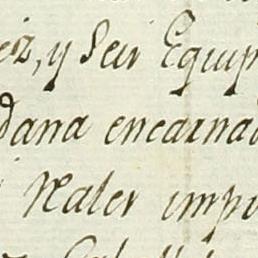 ez, y Seis Equip
dana encarnad
Reales impo